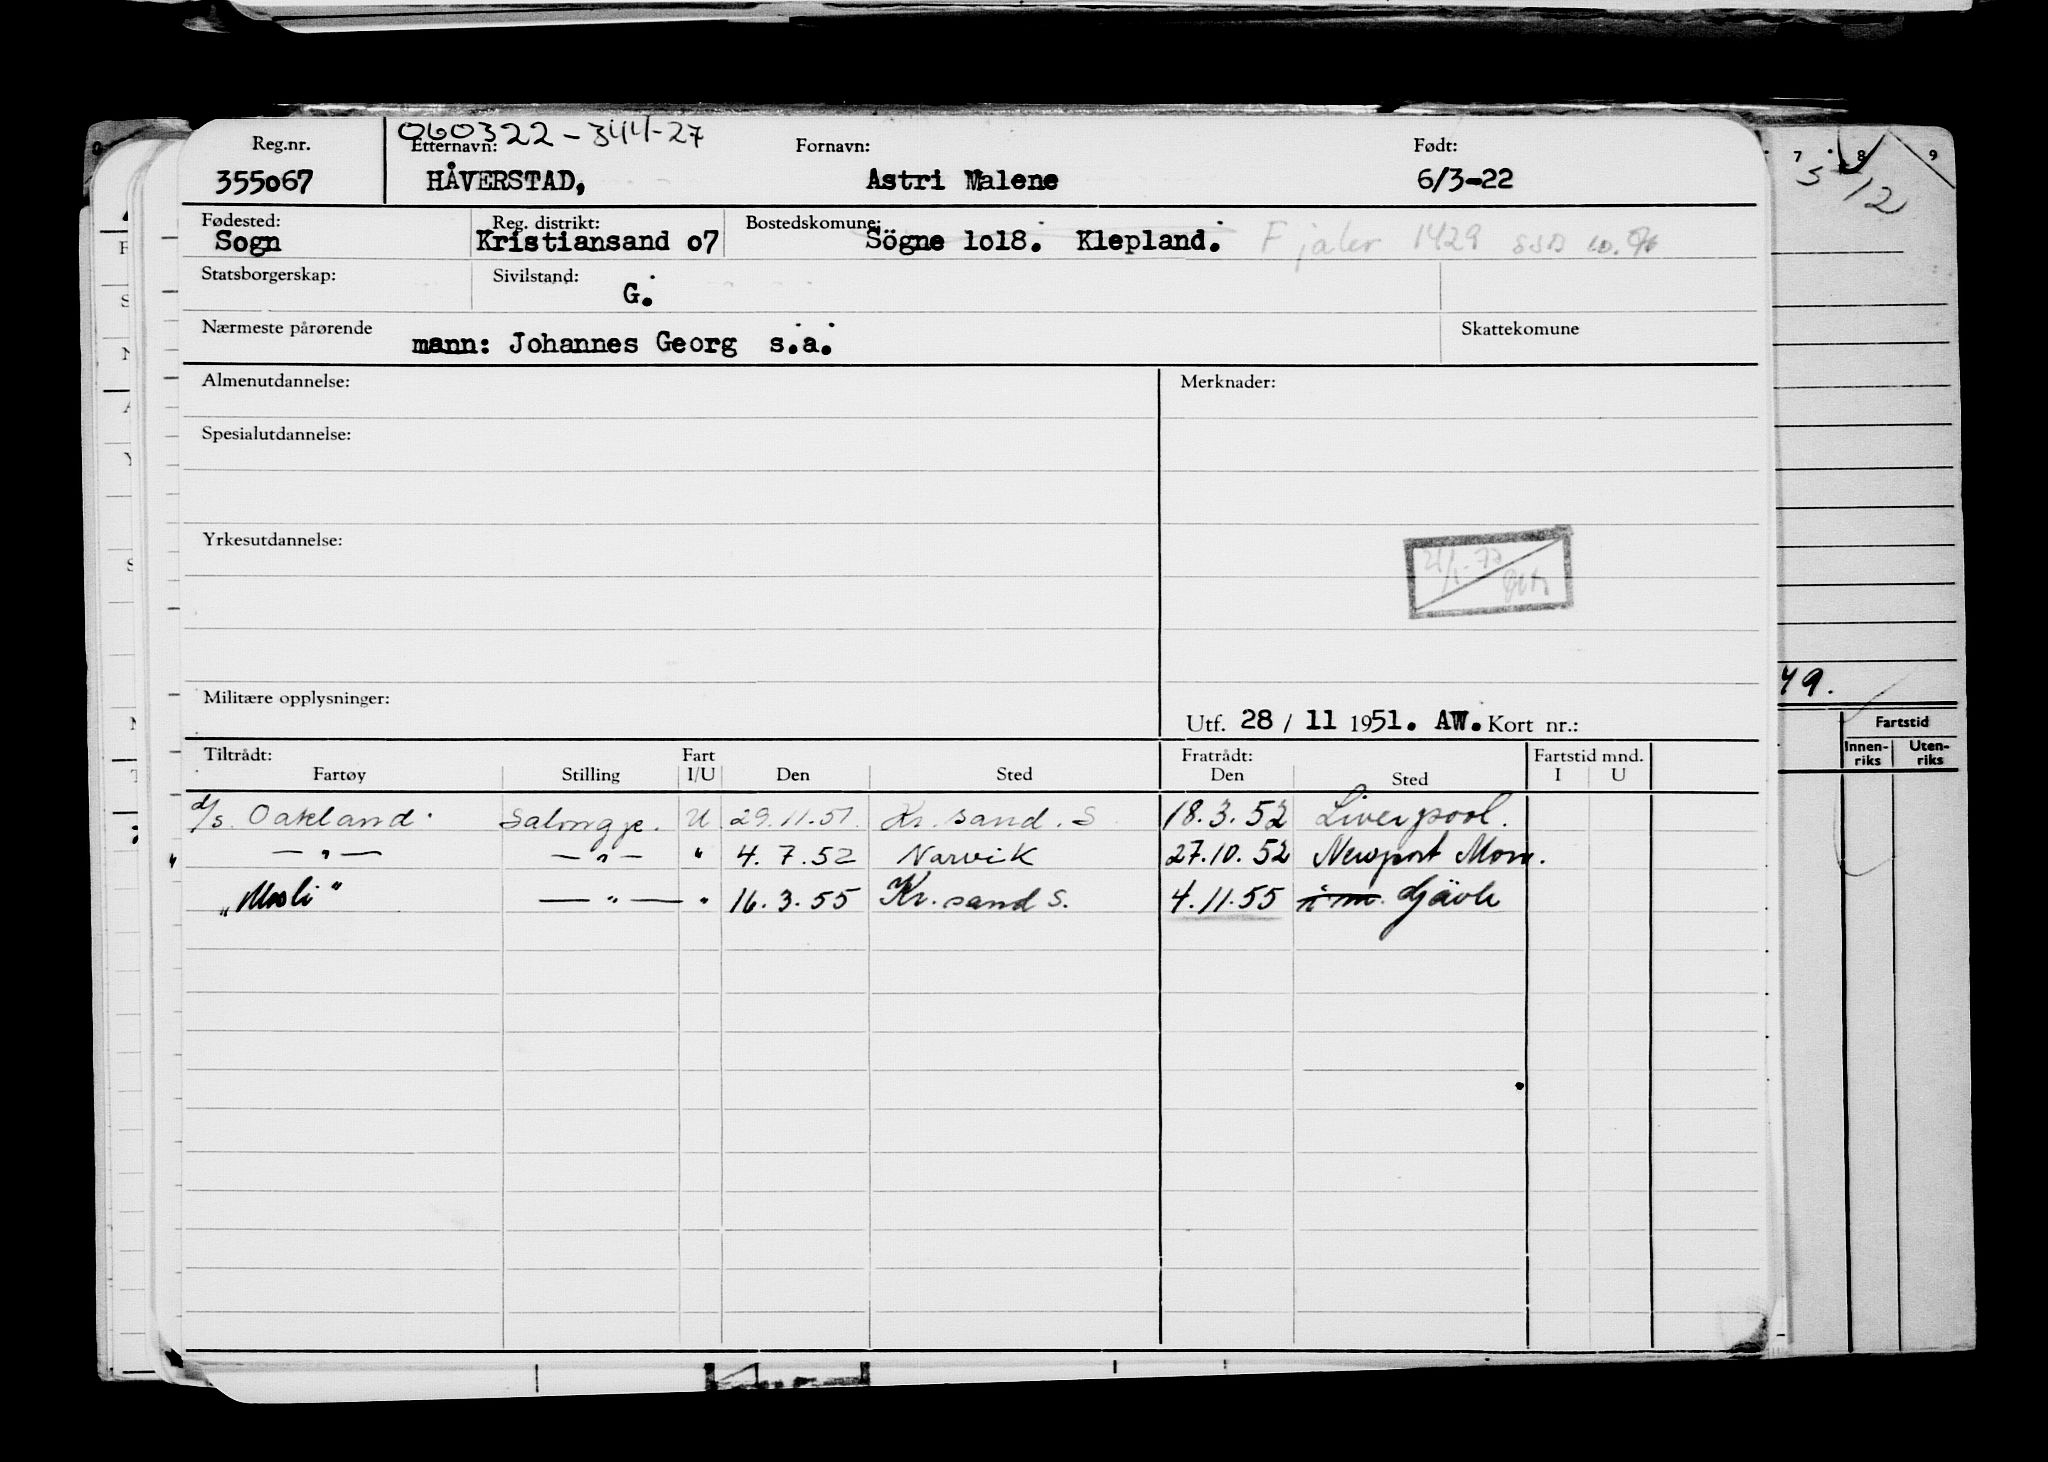 060322-344-27
Reg.nr. Etternavn: Fornavn: Født:
355o67 HÅVERSTAD, Astri Malene 6/3-22
Fødested: Reg. distrikt: Bostedskomune:
Sogn Kristiansand o7 Sögne 1o18. Klepland. Fjaler 1429
Statsborgerskap: Sivilstand: G.
Nærmeste pårørende mann: Johannes Georg s.a. Skattekomune
Almenutdannelse: Merknader:
Spesialutdannelse:
Yrkesutdannelse:
Militære opplysninger:
Utf. 28 / 11 1951. AW. Kort nr.:
Tiltrådt: Fart Fratrådt: Fartstid mnd.
Fartøy Stilling I/U Den Sted Den Sted I U
d/s. Oakland. Salongpe. U 29.11.51. Kr. sand. S 18.3.52 Liverpool.
" — " — — " — " 4.7.52 Narvik 27.10.52 Newport Mon.
"Mosli" — " — " 16.3.55 Kr. sand S. 4.11.55 Gjävle
7 8 9
5 12
49.
Fartstid
Innen-riks Uten-riks